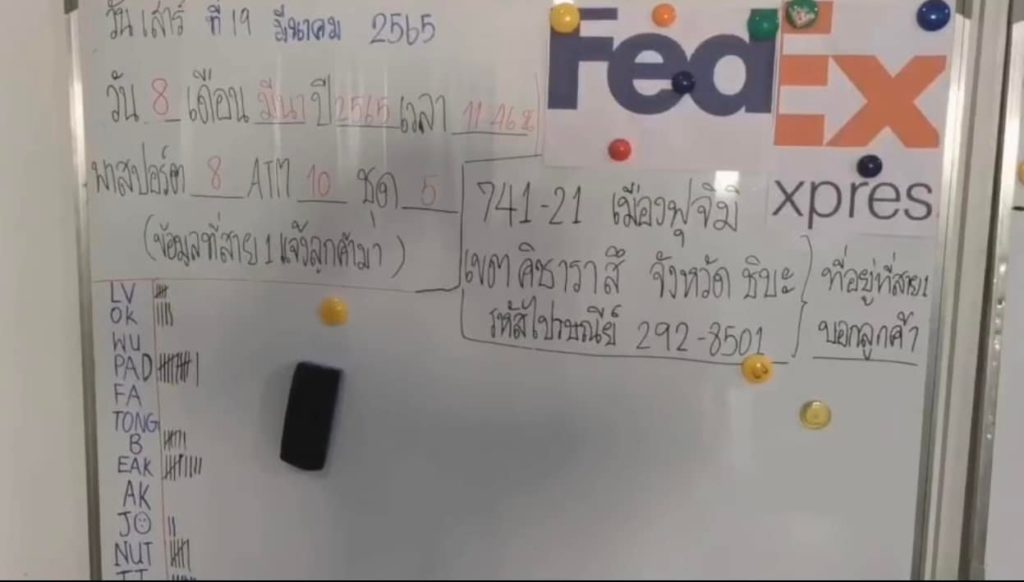 วันเสาร์ ที่ 19 มีนาคม 2565
FedEx
xpres
วัน 8 เดือน มีนา ปี 2565 เวลา 11.46 น
พาสปอร์ต 8 ATM 10 ชุด 5
(ข้อมูลที่สาย 1 แจ้งลูกค้ามา)
741-21 เมืองฟุจิมิ
เขต คิซาราสึ จังหวัด ชิบะ
รหัสไปรษณีย์ 292-8501
ที่อยู่ที่สาย1
บอกลูกค้า
LV
OK
WU
PAD
FA
TONG
B
EAK
AK
JO
NUT